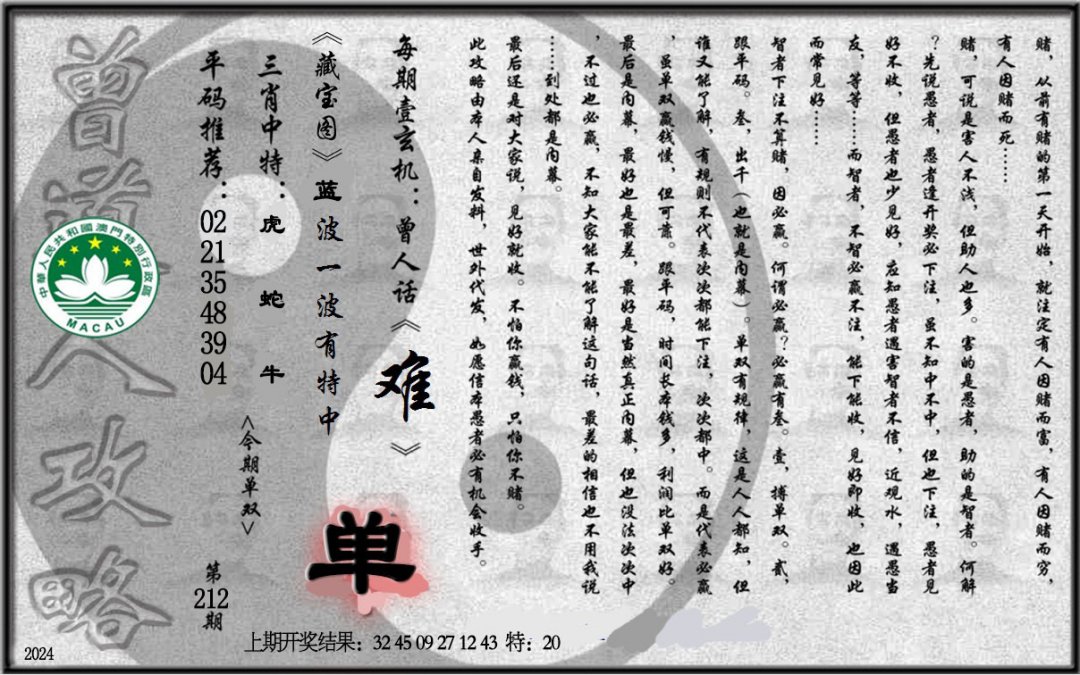 赌，从前有赌的第一天开始，就注定有人因赌而富，有人因赌而穷，
有人因赌而死……
赌，可说是害人不浅，但助人也多。害的是愚者，助的是智者。何解
？先说愚者，愚者逢开奖必下注，虽不知中不中，但也下注，愚者见
好不收，但愚者也少见好，应知愚者遇害智者不信，近观水，遇愚当
友，等等……而智者，不智必赢不注，能下能收，见好即收，也因此
而常见好……
智者下注不算赌，因必赢。何谓必赢？必赢有叁。壹，搏单双。贰，
跟平码。叁，出千（也就是内幕）。单双有规律，这是人人都知，但
谁又能了解，有规则不代表次次都能下注，次次都中。而是代表必赢
，虽单双赢钱慢，但可靠。跟平码，时间长本钱多，利润比单双好。
最后是内幕，最好也是最差，最好是当然真正内幕，但也没法次次中
，不过也必赢，不知大家能不能了解这句话，最差的相信也不用我说
……到处都是内幕。
最后还是对大家说，见好就收。不怕你赢钱，只怕你不赌。
此攻略由本人亲自发料，世外代发，如愿信本愚者必有机会收手。
每期壹玄机：曾人话《难》
《藏宝图》蓝波一波有特中
三肖中特：虎 蛇 牛
平码推荐：02 21 35 48 39 04
<今期单双>
单
第212期
曾道人攻略
中華人民共和國澳門特別行政區
MACAU
上期开奖结果：32 45 09 27 12 43 特：20
2024